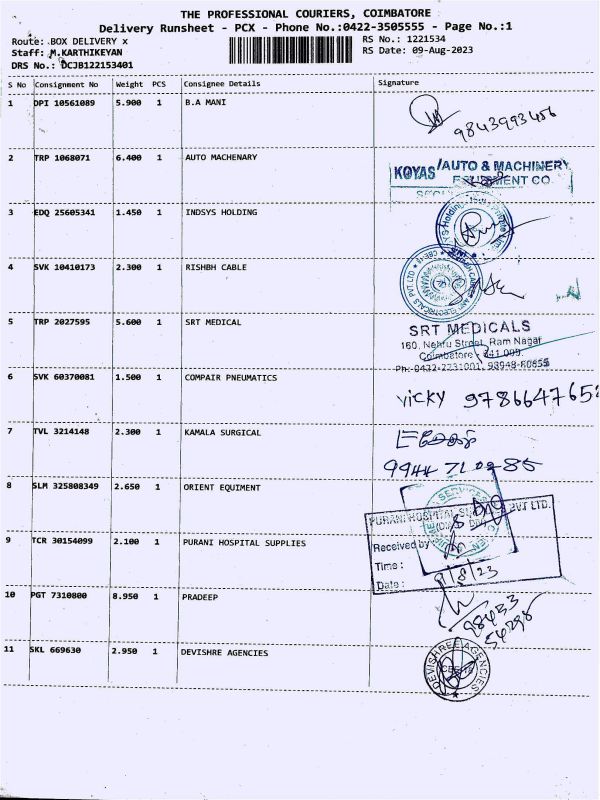 THE PROFESSIONAL COURIERS, COIMBATORE
Delivery Runsheet - PCX - Phone No.:0422-3505555 - Page No.:1
Route: BOX DELIVERY x
RS No.: 1221534
Staff: M.KARTHIKEYAN
RS Date: 09-Aug-2023
DRS No.: DCJB122153401
S No Consignment No Weight PCS Consignee Details Signature
1 DPI 10561089 5.900 1 B.A MANI
9843993456
2 TRP 1068071 6.400 1 AUTO MACHENARY
KOYAS AUTO & MACHINERY
EQUIPMENT CO
3 EDQ 25605341 1.450 1 INDSYS HOLDING
4 SVK 10410173 2.300 1 RISHBH CABLE
5 TRP 2027595 5.600 1 SRT MEDICAL
SRT MEDICALS
160, Nehru Street, Ram Nagar
Coimbatore - 641 009.
Ph: 0422-2231001, 98948-60855
6 SVK 60370081 1.500 1 COMPAIR PNEUMATICS
VICKY 9786647652
7 TVL 3214148 2.300 1 KAMALA SURGICAL
8 SLM 325808349 2.650 1 ORIENT EQUIMENT
PURANI HOSPITAL SUPPLIES PVT LTD.
9 TCR 30154099 2.100 1 PURANI HOSPITAL SUPPLIES
Received by
Time :
Date : 9/8/23
10 PGT 7310800 8.950 1 PRADEEP
98433
54298
11 SKL 669630 2.950 1 DEVISHRE AGENCIES
DEVISHREE AGENCIES